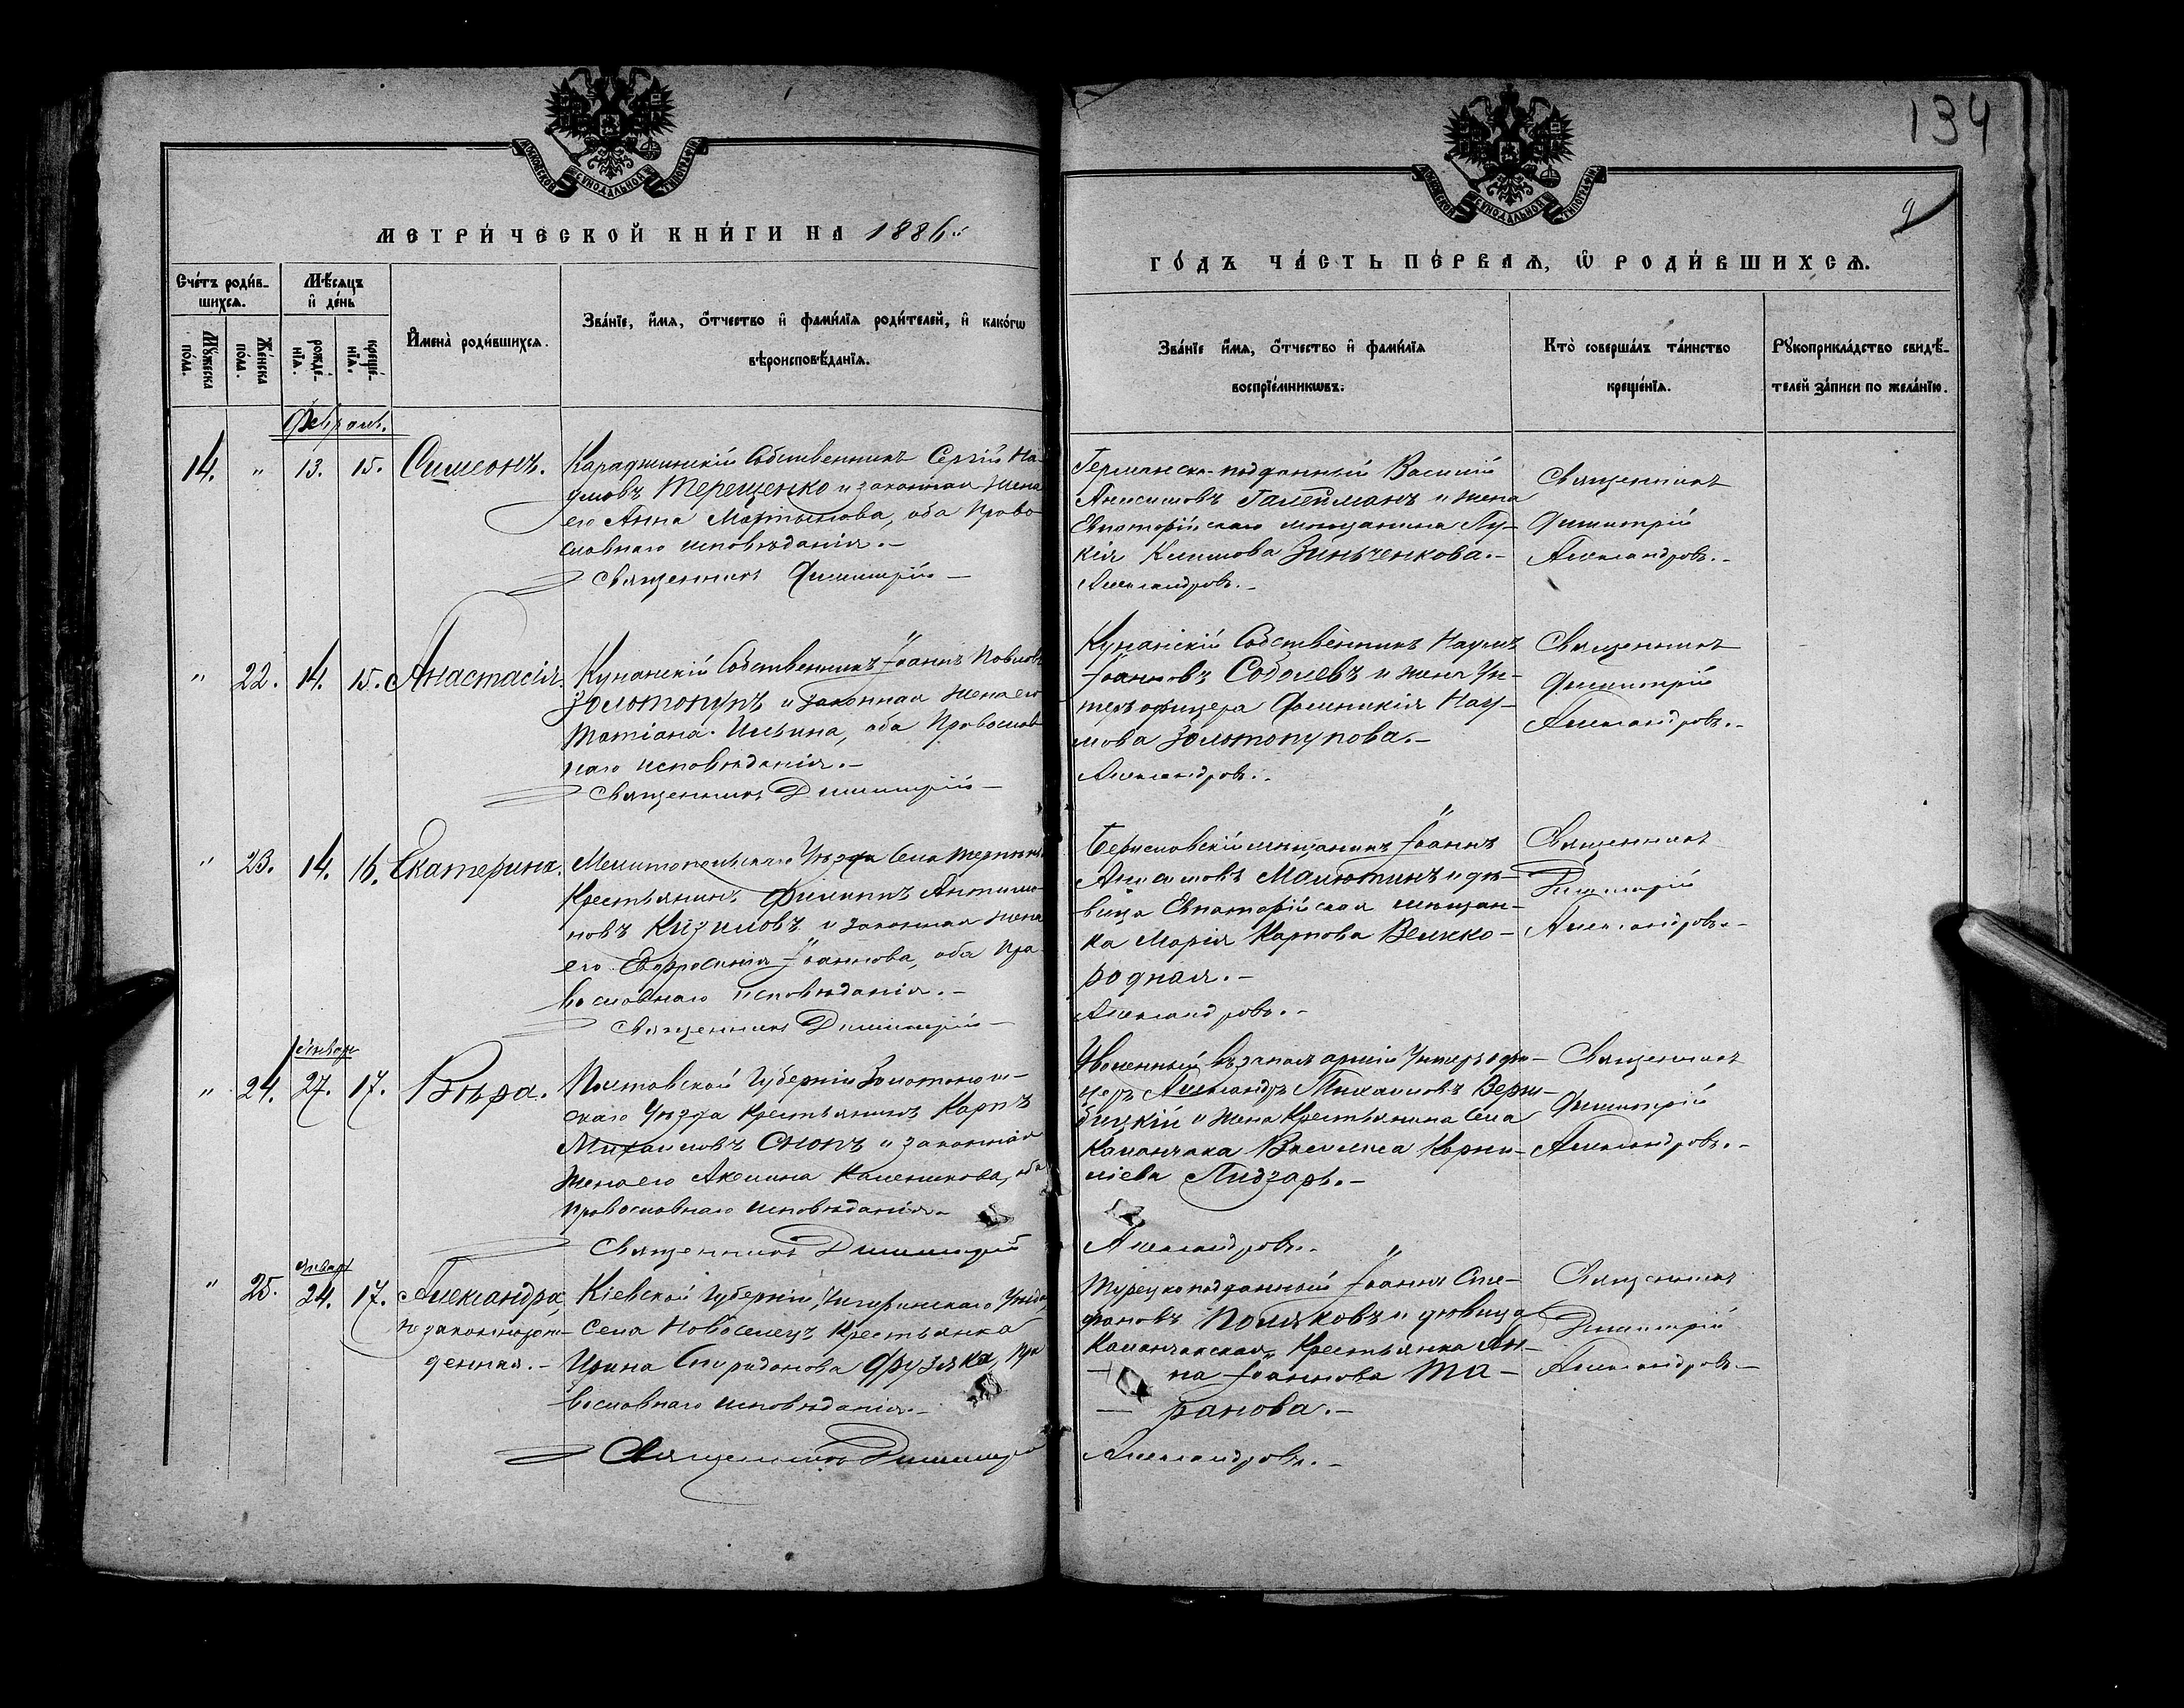 134
9
МОСКОВСКОЙ СѴНОДАЛЬНОЙ ТИПОГРАФІИ
МОСКОВСКОЙ СѴНОДАЛЬНОЙ ТИПОГРАФІИ
МЕТРИ́ЧЕСКОЙ КНИ́ГИ НА 1886й
ГО́ДЪ ЧА́СТЬ ПЕ́РВАѦ, Ѽ РОДИ́ВШИХСѦ.
Сче́тъ роди́в-
шихсѧ.
Мѣ́сѧцъ
и҆ де́нь
Мꙋ́жеска
по́ла.
Же́нска
по́ла.
рожде́-
нїѧ.
креще́-
нїѧ.
И҆мена̀ роди́вшихсѧ.
Зва́нїе, и҆́мѧ, ѻ҆́тчество и҆ фами́лїѧ роди́телей, и҆ како́гѡ
вѣроисповѣ́данїѧ.
Зва́нїе и҆́мѧ, ѻ҆́тчество и҆ фами́лїѧ
воспрїе́мникѡвъ.
Кто̀ соверша́лъ та́инство
креще́нїѧ.
Рꙋкоприкла́дство свидѣ́-
телей за́писи по жела́нїю.
Февраль.
14. " 13. 15. Симеонъ.
Караджинскій Собственникъ Сергій На-
умовъ Терещенко и законная жена
его Анна Мартынова, оба Право-
славнаго исповѣданія.-
Священникъ Димитрій -
Германско-подданный Василій
Анисимовъ Галейманъ и жена
Евпаторійскаго мѣщанина Лу-
кія Климова Зинченкова.-
Александровъ.-
Священникъ
Димитрій
Александровъ.-
" 22. 14. 15. Анастасія.
Кунанскій Собственникъ Іоаннъ Павловъ
Золотопупъ и законная жена его
Татіана Ильина, оба Православ-
наго исповѣданія.-
Священникъ Димитрій -
Кунанскій Собственникъ Наумъ
Іоанновъ Соболевъ и жена Ун-
теръ офицера Домникія Нау-
мова Золотопупова.-
Александровъ.-
Священникъ
Димитрій
Александровъ.-
" 23. 14. 16. Екатерина.
Мелитопольскаго Уѣзда Села
Крестьянинъ Филиппъ Антоно-
новъ Кизиловъ и законная жена
его Евфросинія Іоаннова, оба Пра-
вославнаго исповѣданія.-
Священникъ Димитрій -
Бериславскій мѣщанинъ Іоаннъ
Анисимовъ Малютинъ и дѣ-
вица Евпаторійская мѣщан-
ка Марія Карпова Велико-
родная.-
Александровъ.-
Священникъ
Димитрій
Александровъ.-
Январь
" 24. 27. 17. Вѣра.
Полтавской Губерніи Золотонош-
скаго Уѣзда Крестьянинъ Карпъ
Михаиловъ Снопъ и законная
жена его Акилина Каленикова, оба
Православнаго исповѣданія.-
Священникъ Димитрій
Уволенный въ запасъ арміи Унтеръ офи-
церъ Александръ Михаиловъ Верж-
бицкій и жена Крестьянина Села
Каланчака Василиса Корни-
ліева Лидзарь.-
Александровъ.-
Священникъ
Димитрій
Александровъ.-
Январь
" 25. 24. 17. Александра,
незаконнорож-
денная.-
Кіевской Губерніи, Чигиринскаго Уѣзда,
Села Новоселецъ Крестьянка
Ирина Спиридонова Фрузяка, Пра
вославнаго исповѣданія.-
Священникъ Димитрій
Турецкоподданный Іоаннъ Сте-
фановъ Поляковъ и дѣвица
Каланчакская Крестьянка Ан-
на Іоаннова Та-
ранова.-
Александровъ.-
Священникъ
Димитрій
Александровъ.-